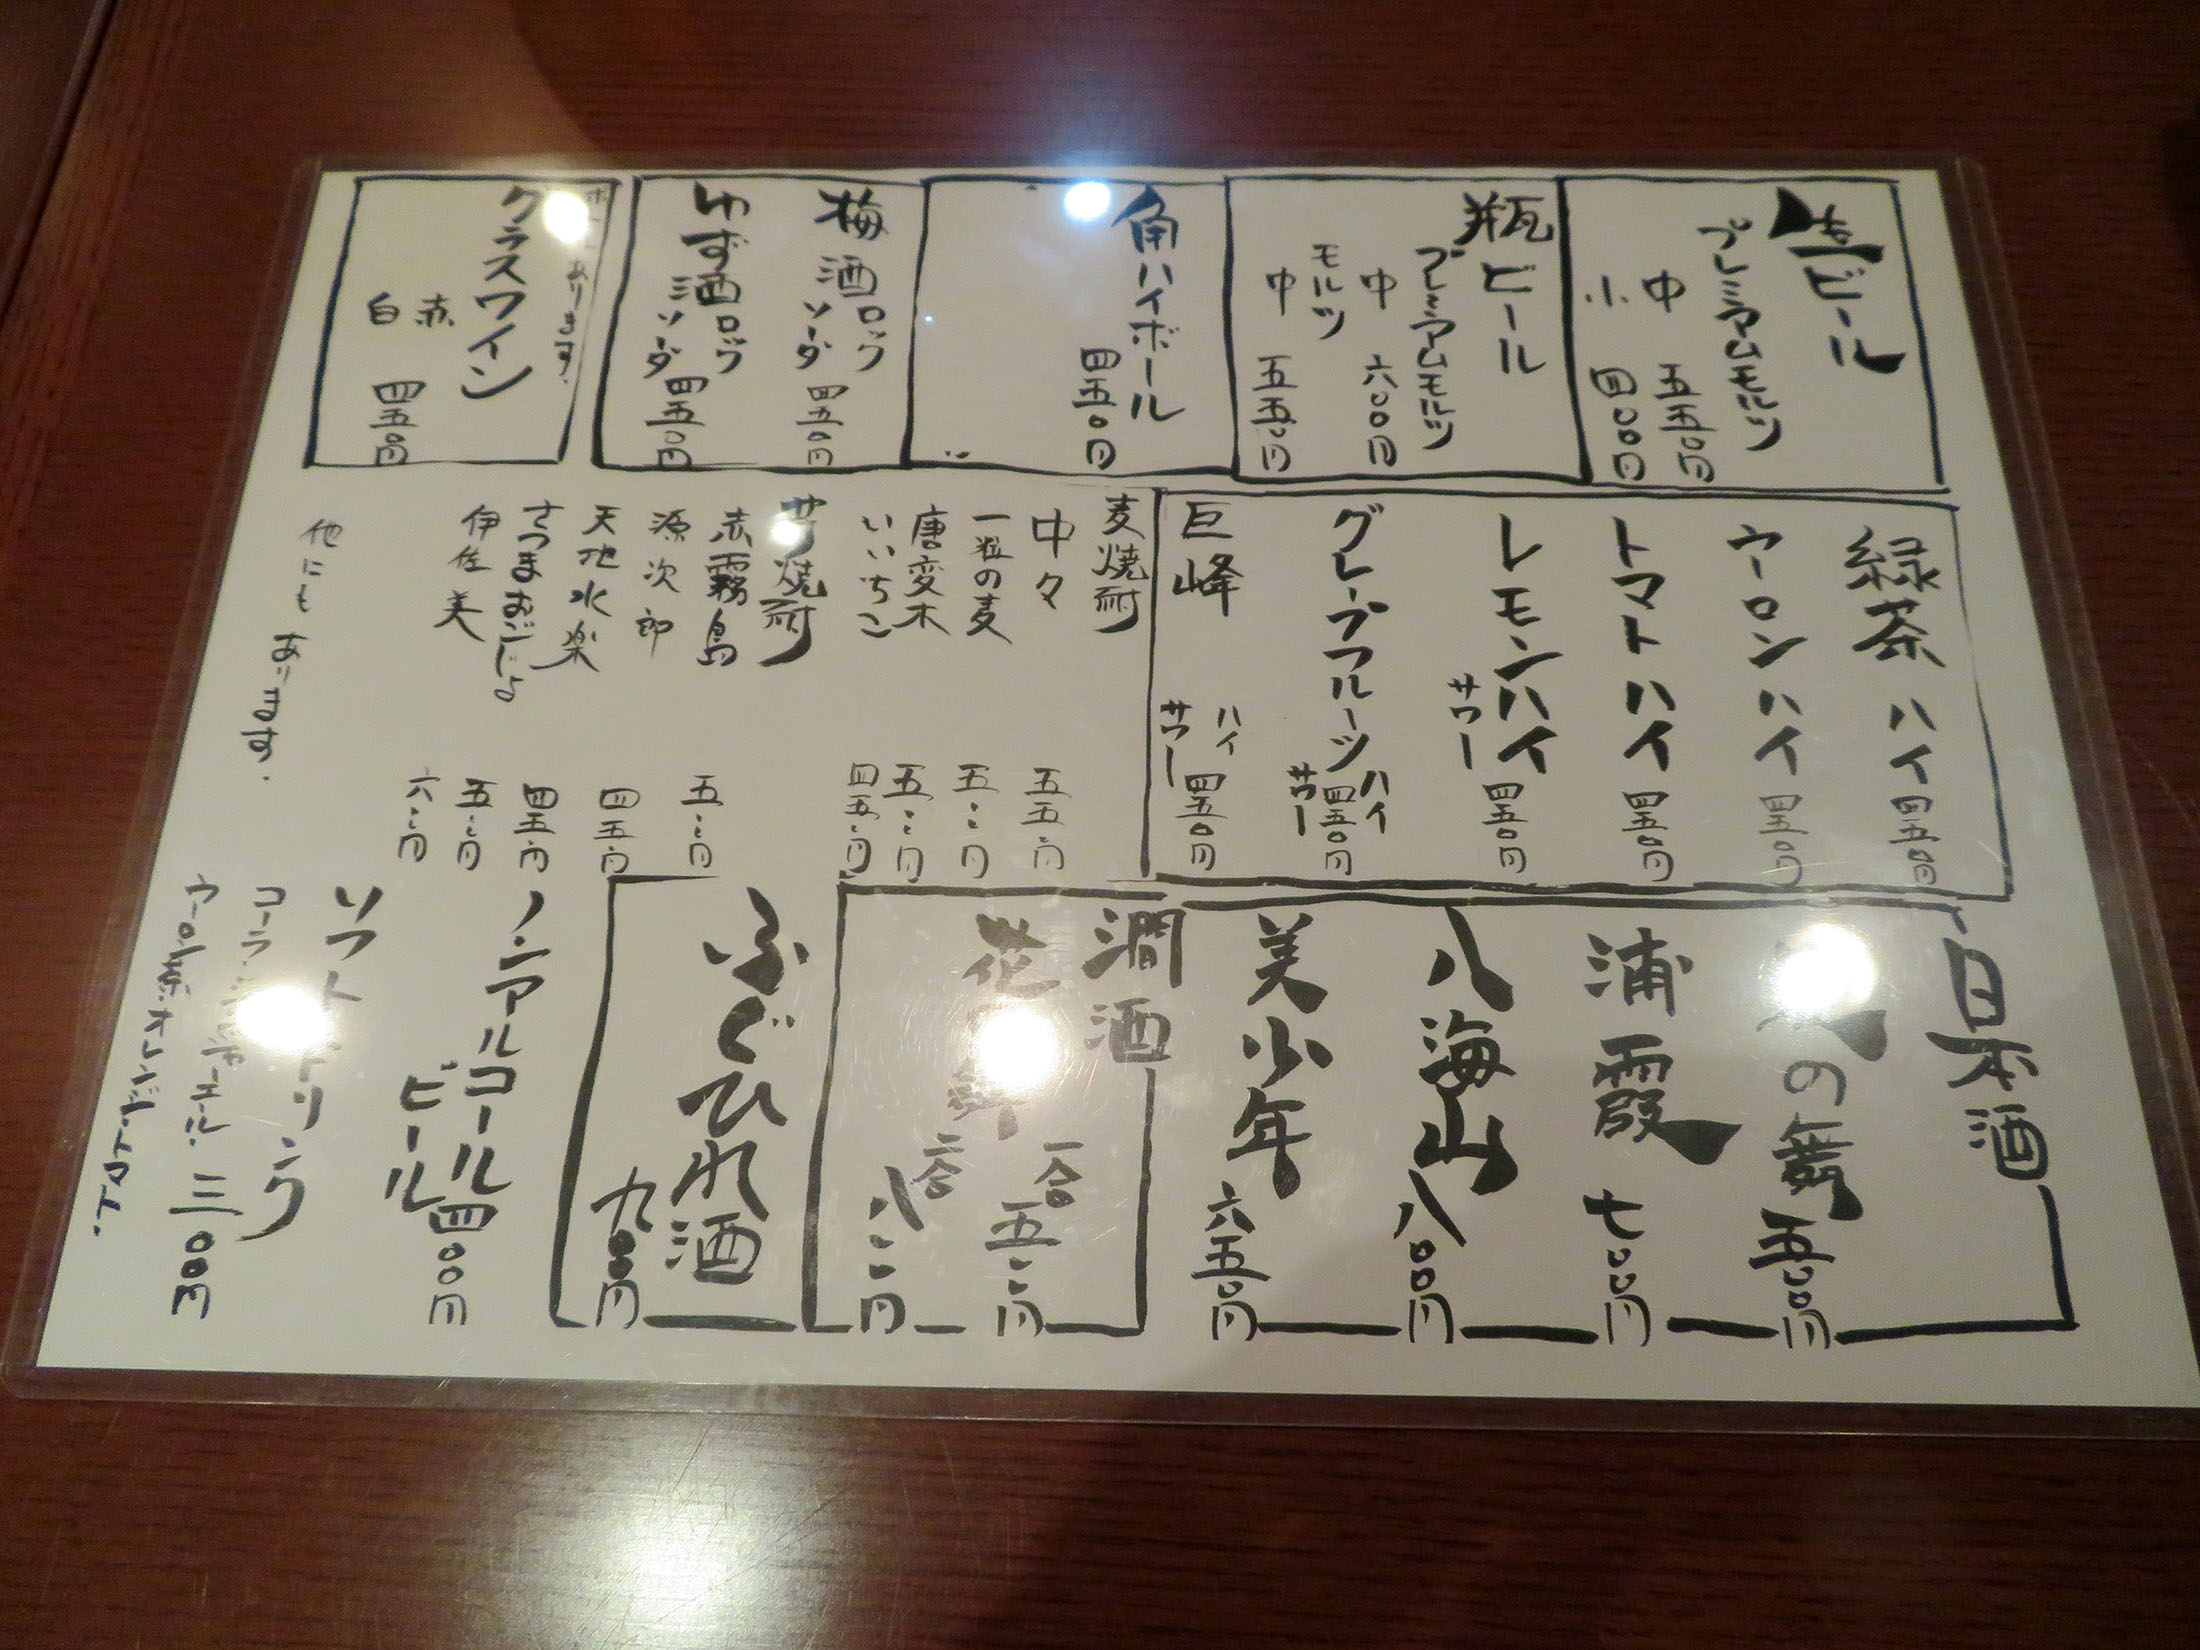 生ビール
プレミアムモルツ
中 五五〇円
小 四〇〇円
瓶ビール
プレミアムモルツ
中 六〇〇円
モルツ
中 五五〇円
角ハイボール
四五〇円
梅酒 ロック
ソーダ 四五〇円
ゆず酒 ロック
ソーダ 四五〇円
あります。
グラスワイン
赤
白 四五〇円
緑茶ハイ 四五〇円
ウーロンハイ 四五〇円
トマトハイ 四五〇円
レモンハイ
サワー 四五〇円
グレープフルーツハイ
サワー 四五〇円
巨峰 ハイ
サワー 四五〇円
麦焼酎
中々 五五〇円
一粒の麦 五〇〇円
唐変木 五〇〇円
いいちこ 四五〇円
芋焼酎
赤霧島 五〇〇円
源次郎 四五〇円
天地水楽 四五〇円
さつまおごじょ 五〇〇円
伊佐美 六〇〇円
他にもあります。
日本酒
の舞 五〇〇円
浦霞 七〇〇円
八海山 八〇〇円
美少年 六五〇円
燗酒
一合 五〇〇円
二合 八〇〇円
ふぐひれ酒
九〇〇円
ノンアルコール
ビール 四〇〇円
ソフトドリンク
コーラ
ウーロン茶・オレンジ・トマト・
三〇〇円